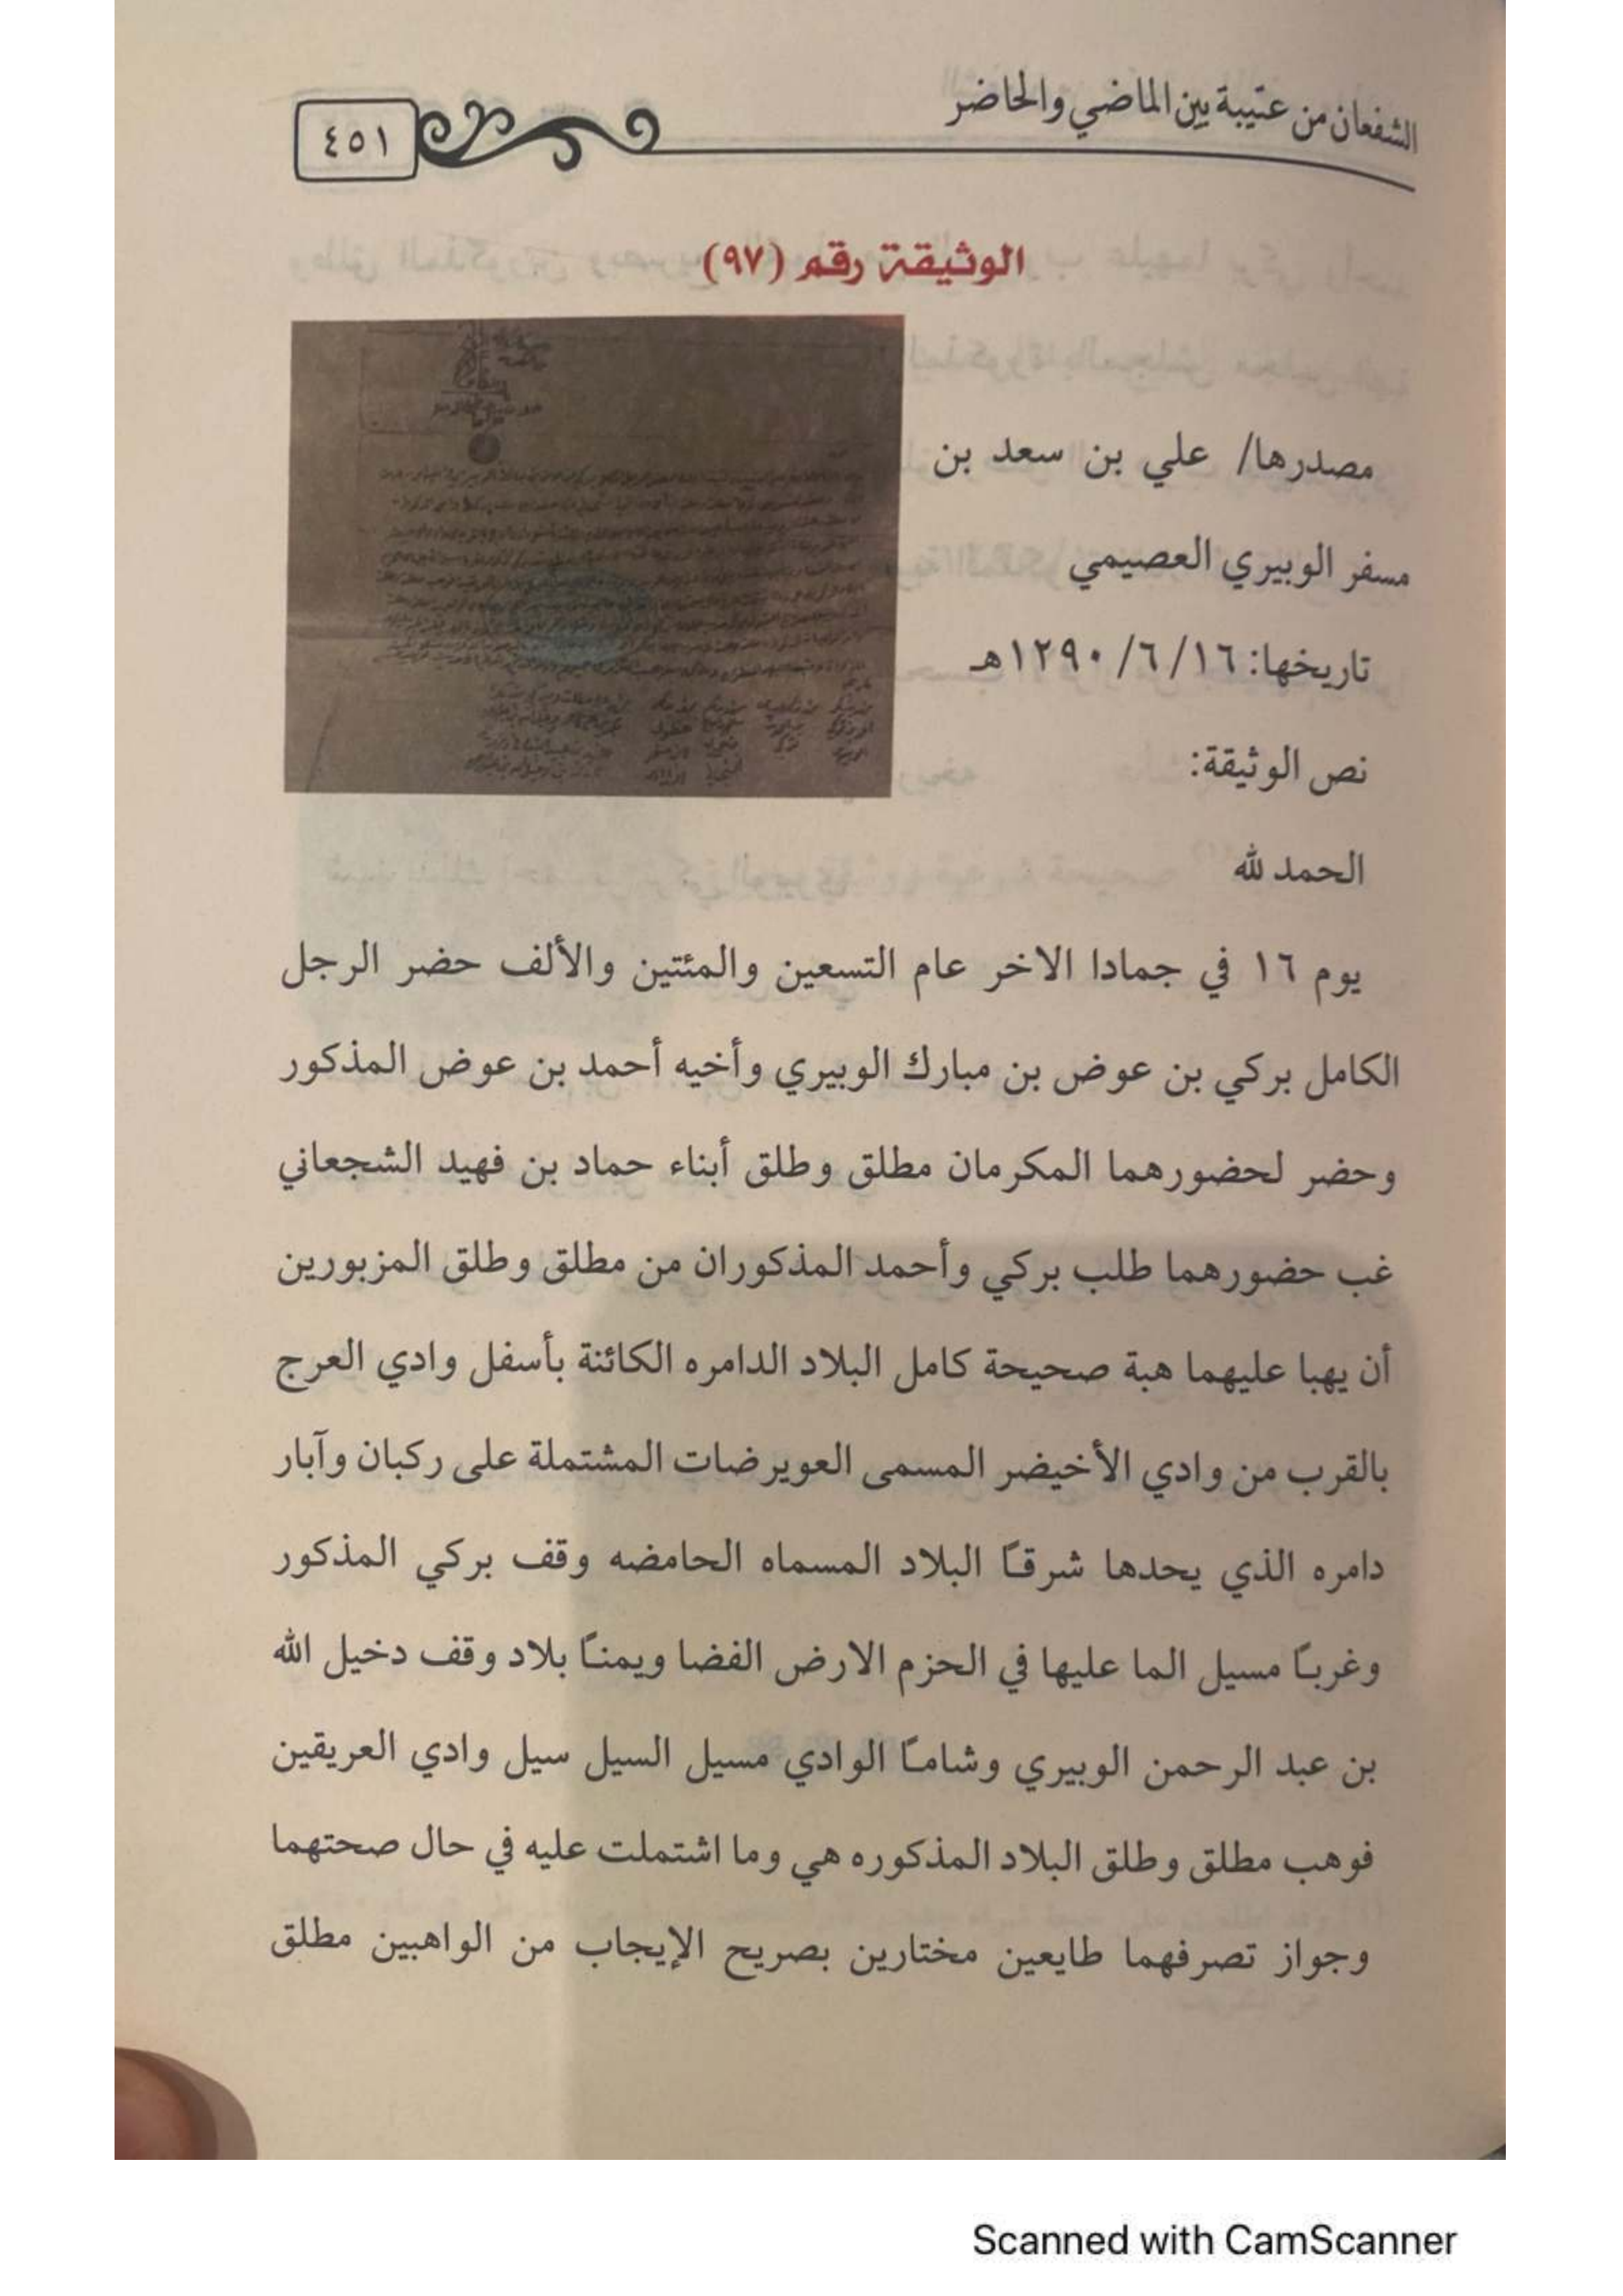 الشفعان من عتيبة بين الماضي والحاضر
٤٥١
الوثيقة رقم (٩٧)
مصدرها/ علي بن سعد بن
مسفر الوبيري العصيمي
تاريخها: ١٦/ ٦/ ١٢٩٠هـ
نص الوثيقة:
الحمد لله
يوم ١٦ في جمادا الاخر عام التسعين والمئتين والألف حضر الرجل
الكامل بركي بن عوض بن مبارك الوبيري وأخيه أحمد بن عوض المذكور
وحضر لحضورهما المكرمان مطلق وطلق أبناء حماد بن فهيد الشجعاني
غب حضورهما طلب بركي وأحمد المذكوران من مطلق وطلق المزبورين
أن يهبا عليهما هبة صحيحة كامل البلاد الدامره الكائنة بأسفل وادي العرج
بالقرب من وادي الأخيضر المسمى العويرضات المشتملة على ركبان وآبار
دامره الذي يحدها شرقاً البلاد المسماه الحامضه وقف بركي المذكور
وغرباً مسيل الما عليها في الحزم الارض الفضا ويمناً بلاد وقف دخيل الله
بن عبد الرحمن الوبيري وشاماً الوادي مسيل السيل سيل وادي العريقين
فوهب مطلق وطلق البلاد المذكوره هي وما اشتملت عليه في حال صحتهما
وجواز تصرفهما طايعين مختارين بصريح الإيجاب من الواهبين مطلق
Scanned with CamScanner